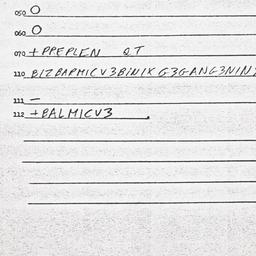 050 O
060 O
070 + PREPLEN QT
110 BIZBAPMICV3BINIKG3GANG3NIN
111 -
112 +BALMICV3